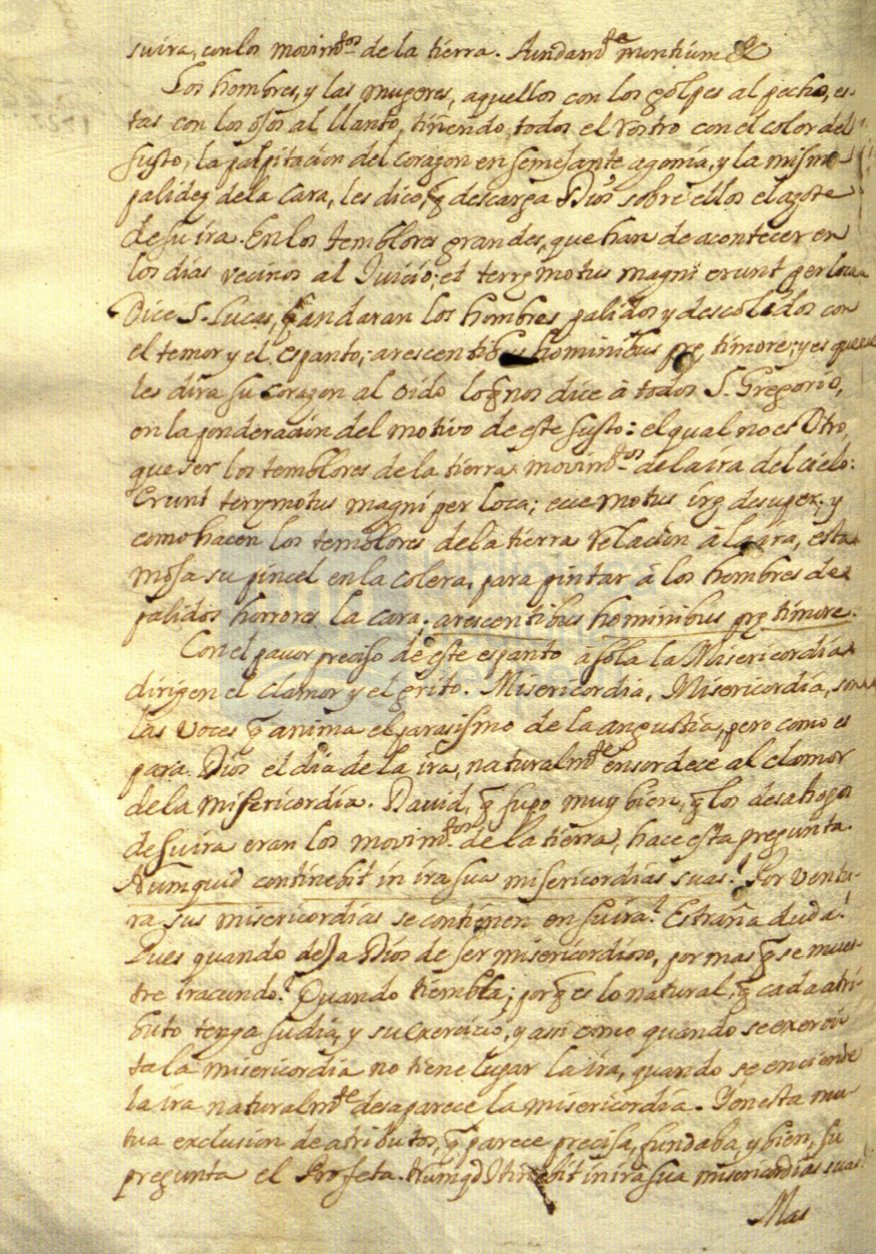 su ira, con los movim.tos de la tierra. Fundam.ta montium &
Los hombres, y las mugeres, aquellos con los golpes al pecho, es-
tas con los ojos al llanto, tiñendo todos el rostro con el color del
susto, la palpitacion del corazon en semejante agonia, y la misma
palidez de la cara, les dice, q̃ descarga Dios sobre ellos el azote
de su ira. En los temblores grandes, que han de acontecer en
los dias vecinos al Juicio; et terrę motus magni erunt per loca
Dice S. Lucas, q̃ andaran los hombres palidos y descolados con
el temor y el espanto; arescentibus hominibus prę timore; y es que
les dira su corazon al oido lo q̃ nos dice à todos S. Gregorio,
en la ponderacion del motivo de este susto: el qual no es otro,
que ser los temblores de la tierra movim.tos de la ira del cielo:
Erunt terrę motus magni per loca; ecce motus irę desuper; y
como hacen los temblores de la tierra relacion à la ira, esta
moja su pincel en la colera, para pintar à los hombres de
palidos horrores la cara; arescentibus hominibus prę timore.
Con el pavor preciso de este espanto à sola la Misericordia
dirigen el clamor y el grito. Misericordia, Misericordia, son
las voces q̃ anima el parasismo de la angustia, pero como es
para Dios el dia de la ira, naturalm.te ensordece al clamor
de la misericordia. David, q̃ supo muy bien, q̃ los desahogos
de su ira eran los movim.tos de la tierra, hace esta pregunta.
Numquid continebit in ira sua misericordias suas? Por ventu-
ra sus misericordias se contienen en su ira? Estraña duda!
Pues quando deja Dios de ser misericordioso, por mas q̃ se mues-
tre iracundo? Quando tiembla; porq̃ es lo natural, q̃ cada atri-
buto tenga su dia, y su exercicio, y assi como quando se exerci-
ta la misericordia no tiene lugar la ira, quando se enciende
la ira naturalm.te desaparece la misericordia. Y en esta mu-
tua exclusion de atributos, q̃ parece precisa, fundaba, y bien, su
pregunta el Profeta. Numqd continebit in ira sua misericordias suas?
Mas